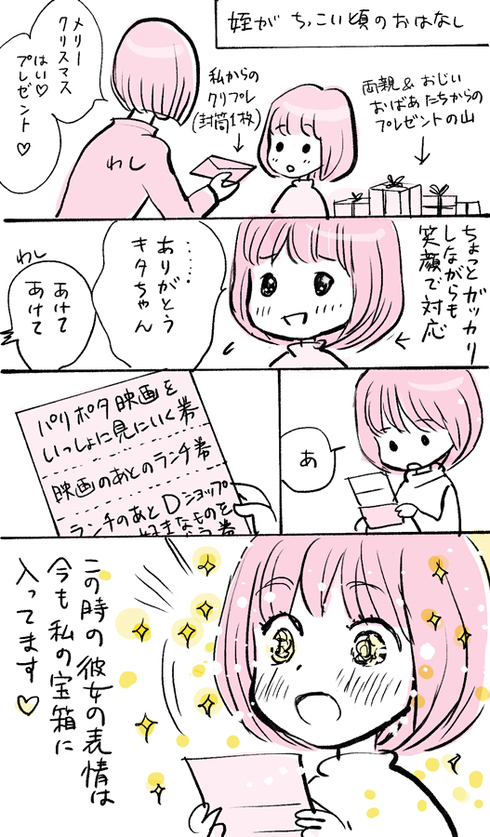 姪が ちっこい頃のおはなし
両親＆おじい
おばあたちからの
プレゼントの山
私からの
クリプレ
(封筒1枚)
メリー
クリスマス
はい♡
プレゼント♡
わし
ちょっとガッカリ
しながらも
笑顔で対応
……
ありがとう
キタちゃん
わし
あけて
あけて
あ
パリポタ映画を
いっしょに見にいく券
映画のあとのランチ券
ランチのあとDショップ
好きなものを
この時の彼女の表情は
今も私の宝箱に
入ってます♡